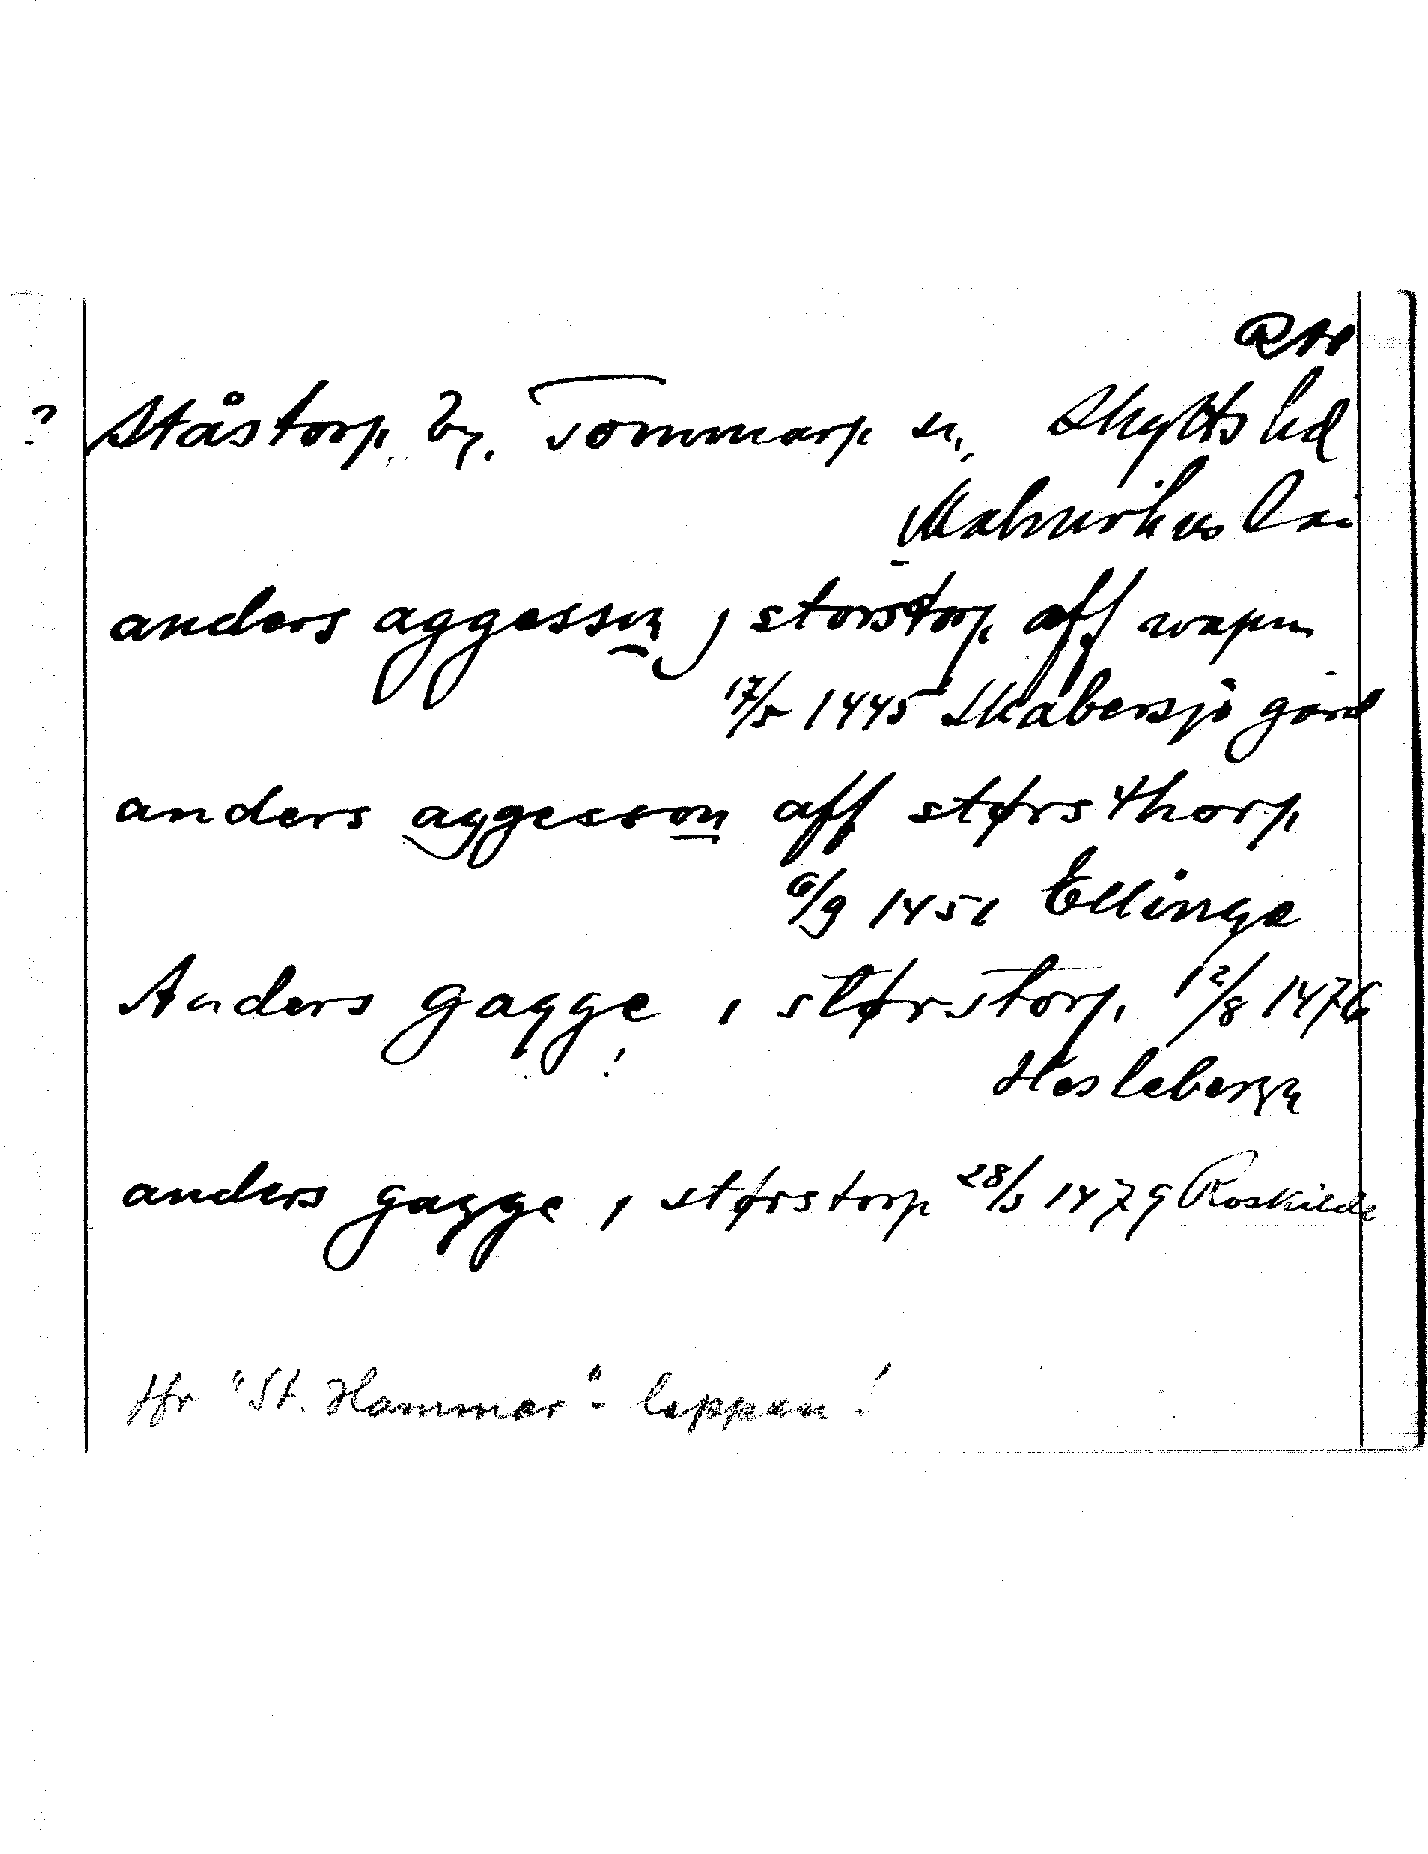 ? Ståstorp. by. Tommarp sn, Skytts hd
Malmöhus län
anders aggesson j storstorp aff wapn
17/5 1445 Skabersjö gård
anders aggesson aff størsthorp
6/9 1451 Ellinge
Anders gagge, i størstorp, 12/8 1476
Hesleberg
anders gagge i størstorp 28/5 1479 Roskilde
Jfr "St. Hammar"- lappen!